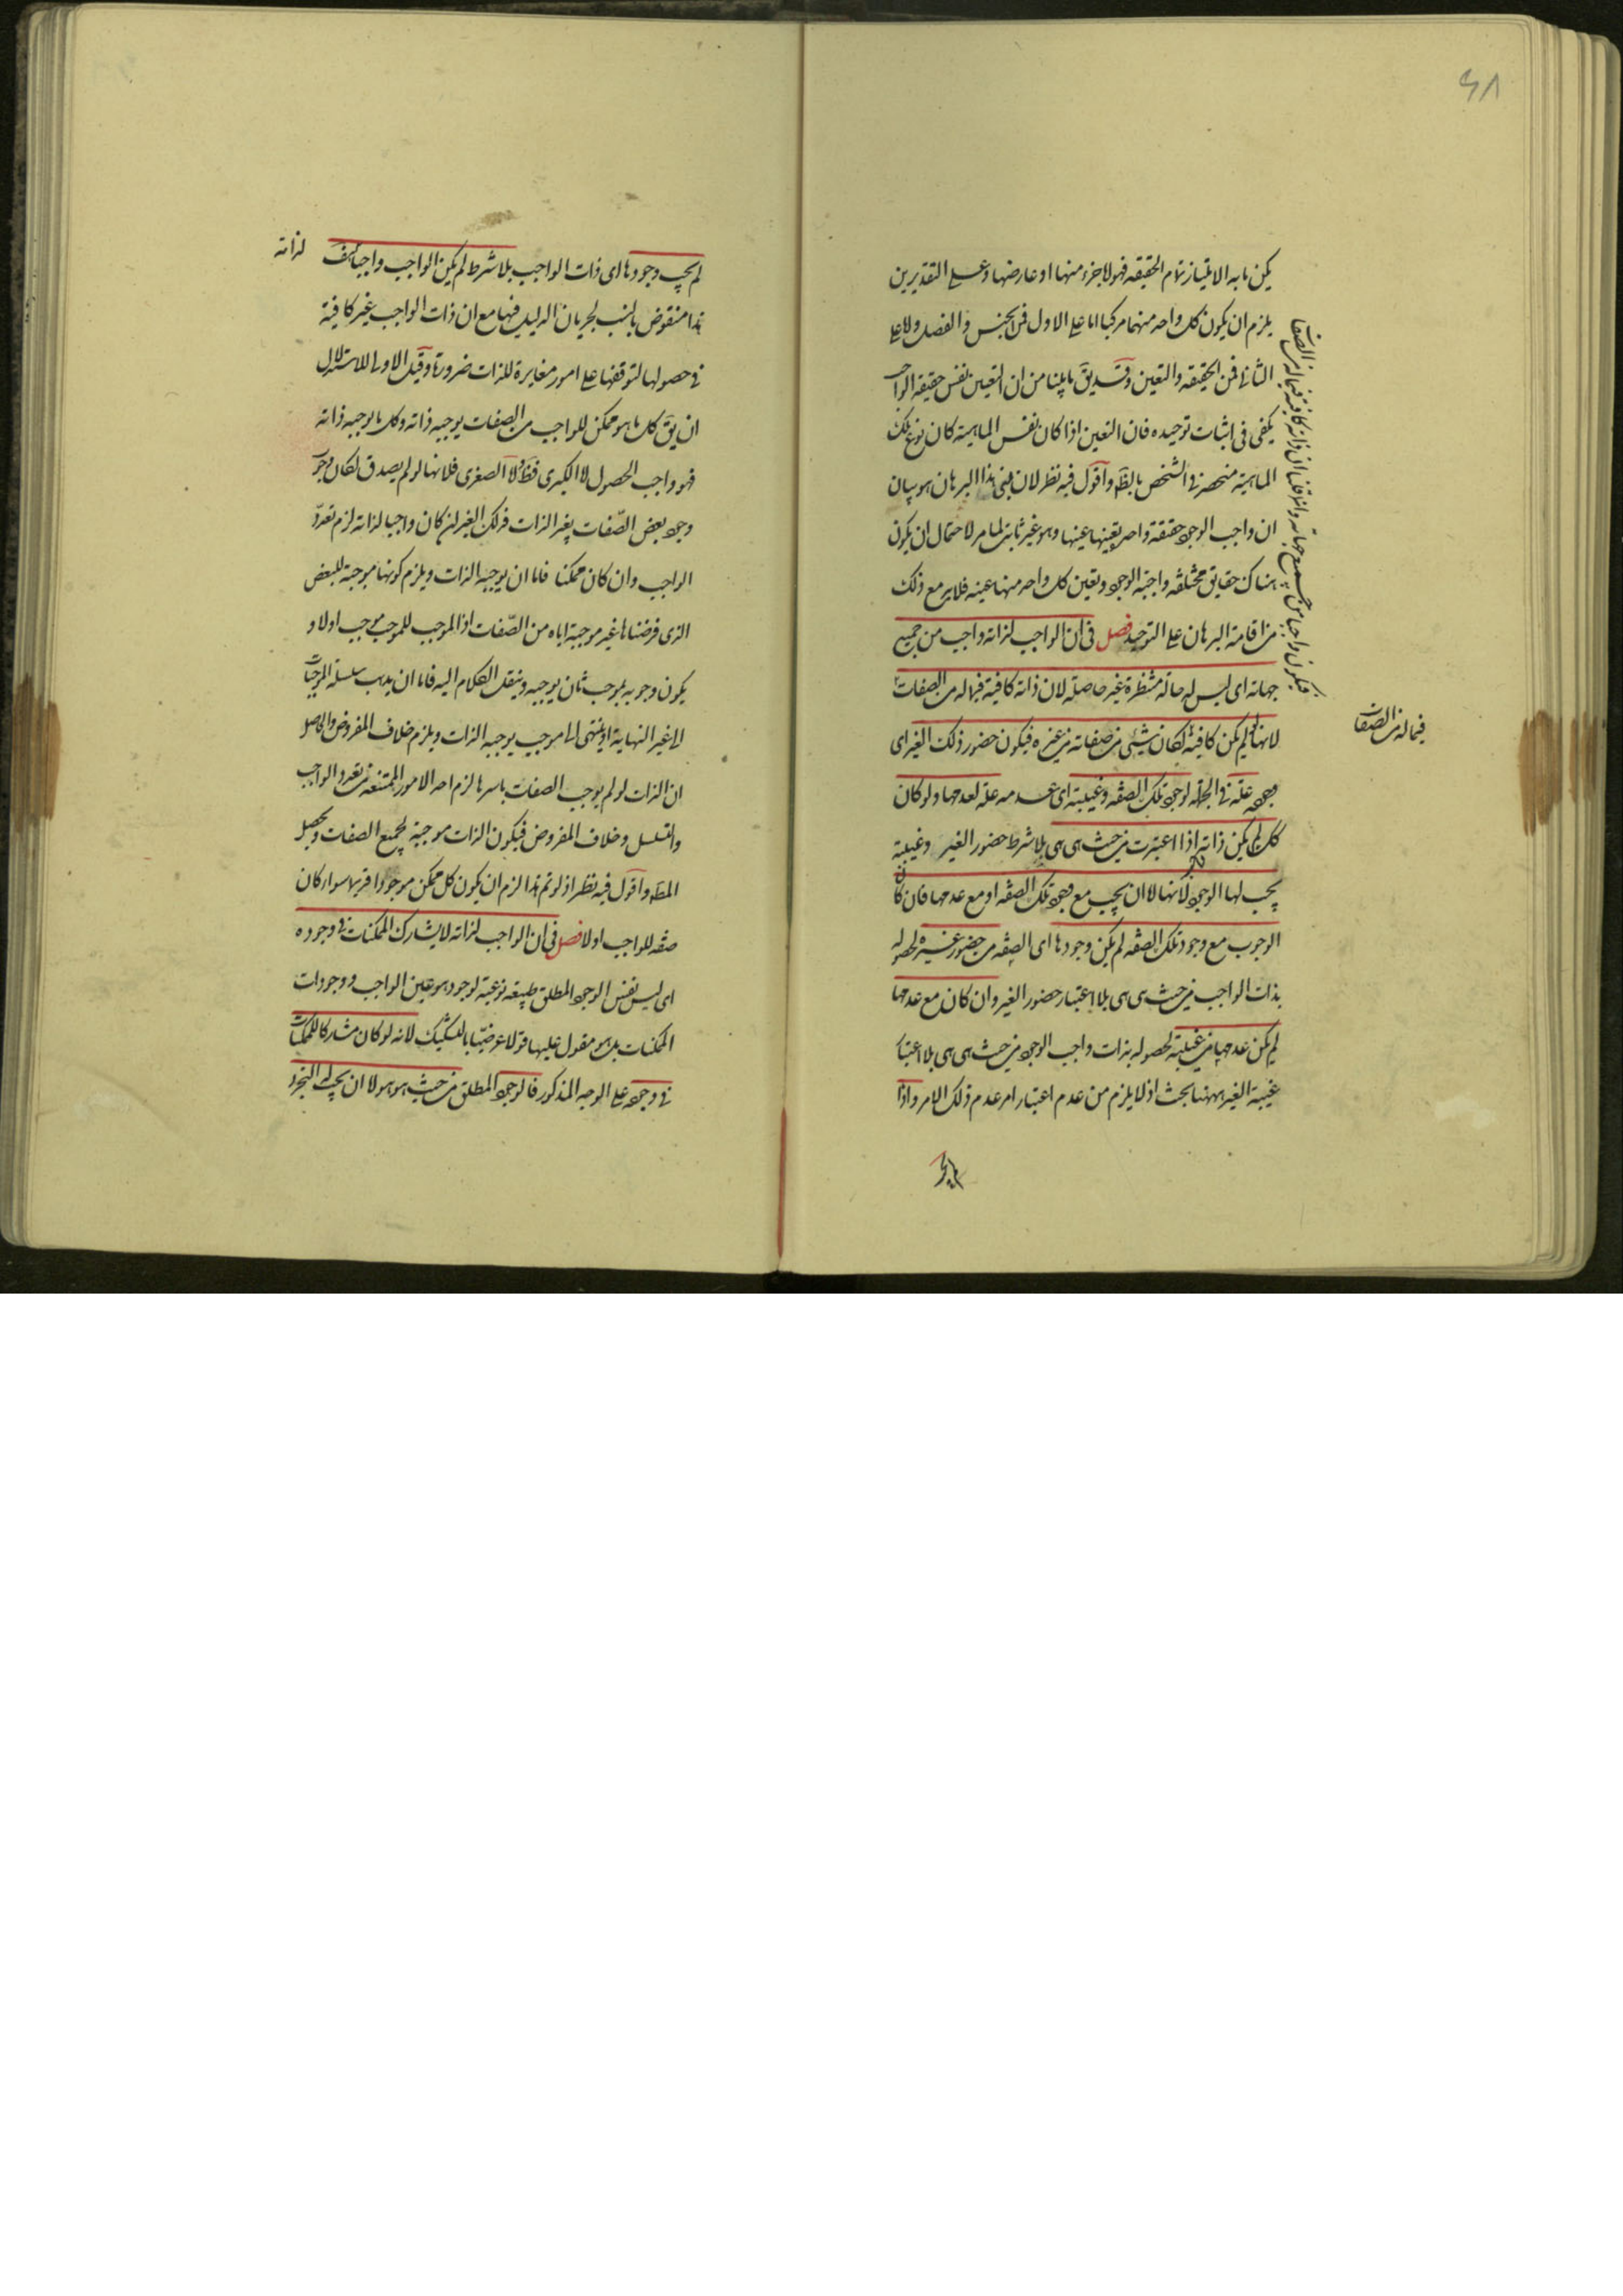 ٤٨
يكن ما به الامتياز تمام الحقيقة فهو لا جزء منها او عارضها وعلى التقديرين
يلزم ان يكون كل واحد منهما مركبا اما على الاول فمن الجنس والفصل واما على
الثانى فمن الحقيقة والتعين وقد يق ما بينا من ان التعين نفس حقيقة الواجب
يكفى فى اثبات توحيده فان التعين اذا كان نفس الماهية كان نوع تلك
الماهية منحصر فى الشخص بالظه واقول فيه نظر لان مبنى هذا البرهان هو بيان
ان واجب الوجود حقيقة واحدة تعينها عينها وهو غير ثابت لما مر لاحتمال ان يكون
هناك حقايق مختلفة واجبة الوجود وتعين كل واحد منها عينه فلا بد مع ذلك
من اقامة البرهان على التوحيد فصل فى ان الواجب لذاته واجب من جميع
جهاته اى ليس له حالة منتظرة غير حاصلة لان ذاته كافية فيما له من الصفات
لانها لو لم يكن كافية لكان شيئى من صفاته من غيره فيكون حضور ذلك الغير اى
وجوده علة فى الجملة لوجود تلك الصفة وغيبته اى عدمه علة لعدمها ولو كان
كك لم يكن ذاته اذا اعتبرت من حيث هى هى بلا شرط حضور الغير وغيبته
يجب لها الوجود لانها لا ان يجب مع وجود تلك الصفة او مع عدمها فان كان
الوجوب مع وجود تلك الصفة لم يكن وجودها اى الصفة من حضور غيره لحصوله
بذات الواجب من حيث هى هى بلا اعتبار حضور الغير وان كان مع عدمها
لم يكن عدمها من غيبته لحصوله بذات واجب الوجود من حيث هى هى بلا اعتبار
غيبة الغير ههنا بحث اذ لا يلزم من عدم اعتبار امر عدم ذلك الامر واذا
فيكون واجبا من جميع جهاته وانما قلنا ان ذاته كافية فيما له من الصفات
فيما له من الصفات
لم يجب وجودها اى ذات الواجب بلا شرط لم يكن الواجب واجبا هف لذاته
هذا منقوض بالنسب لجريان الدليل فيها مع ان ذات الواجب غير كافية
فى حصولها لتوقفها على امور مغايرة للذات ضرورة وقيل الاولى للاستدلال
ان يق كل ما هو ممكن للواجب من الصفات يوجبه ذاته وكل ما يوجبه ذاته
فهو واجب الحصول لا الكبرى فظ ولا الصغرى فلانها لو لم يصدق لكان وجوب
وجود بعض الصفات بغير الذات فذلك الغير ان كان واجبا لذاته لزم تعدد
الواجب وان كان ممكنا فاما ان يوجبه الذات ويلزم كونها موجبة للبعض
الذى فرضناها غير موجبة اياه من الصفات اذ الموجب للموجب موجب اولا و
يكون وجوبه بموجب ثان يوجبه وينقل الكلام اليه فاما ان يذهب سلسلة الموجبات
الى غير النهاية او ينتهى الى موجب يوجبه الذات ويلزم خلاف المفروض والحاصل
ان الذات لو لم يوجب الصفات باسرها لزم احد الامور الممتنعة من تعدد الواجب
والتسلسل وخلاف المفروض فيكون الذات موجبة لجميع الصفات ويحصل
المط واقول فيه نظر اذ لو تم هذا لزم ان يكون كل ممكن موجودا قديما سواء كان
صفة للواجب اولا فصل فى ان الواجب لذاته لا يشارك الممكنات فى وجوده
اى ليس نفس الوجود المطلق طبيعة نوعية لوجود هو عين الواجب ووجودات
الممكنات بل هو مقول عليها قولا عرضيا بالتشكيك لانه لو كان مشاركا للممكنات
فى وجوده على الوجه المذكور فالوجود المطلق من حيث هو هو لا ان يجب له التجرد